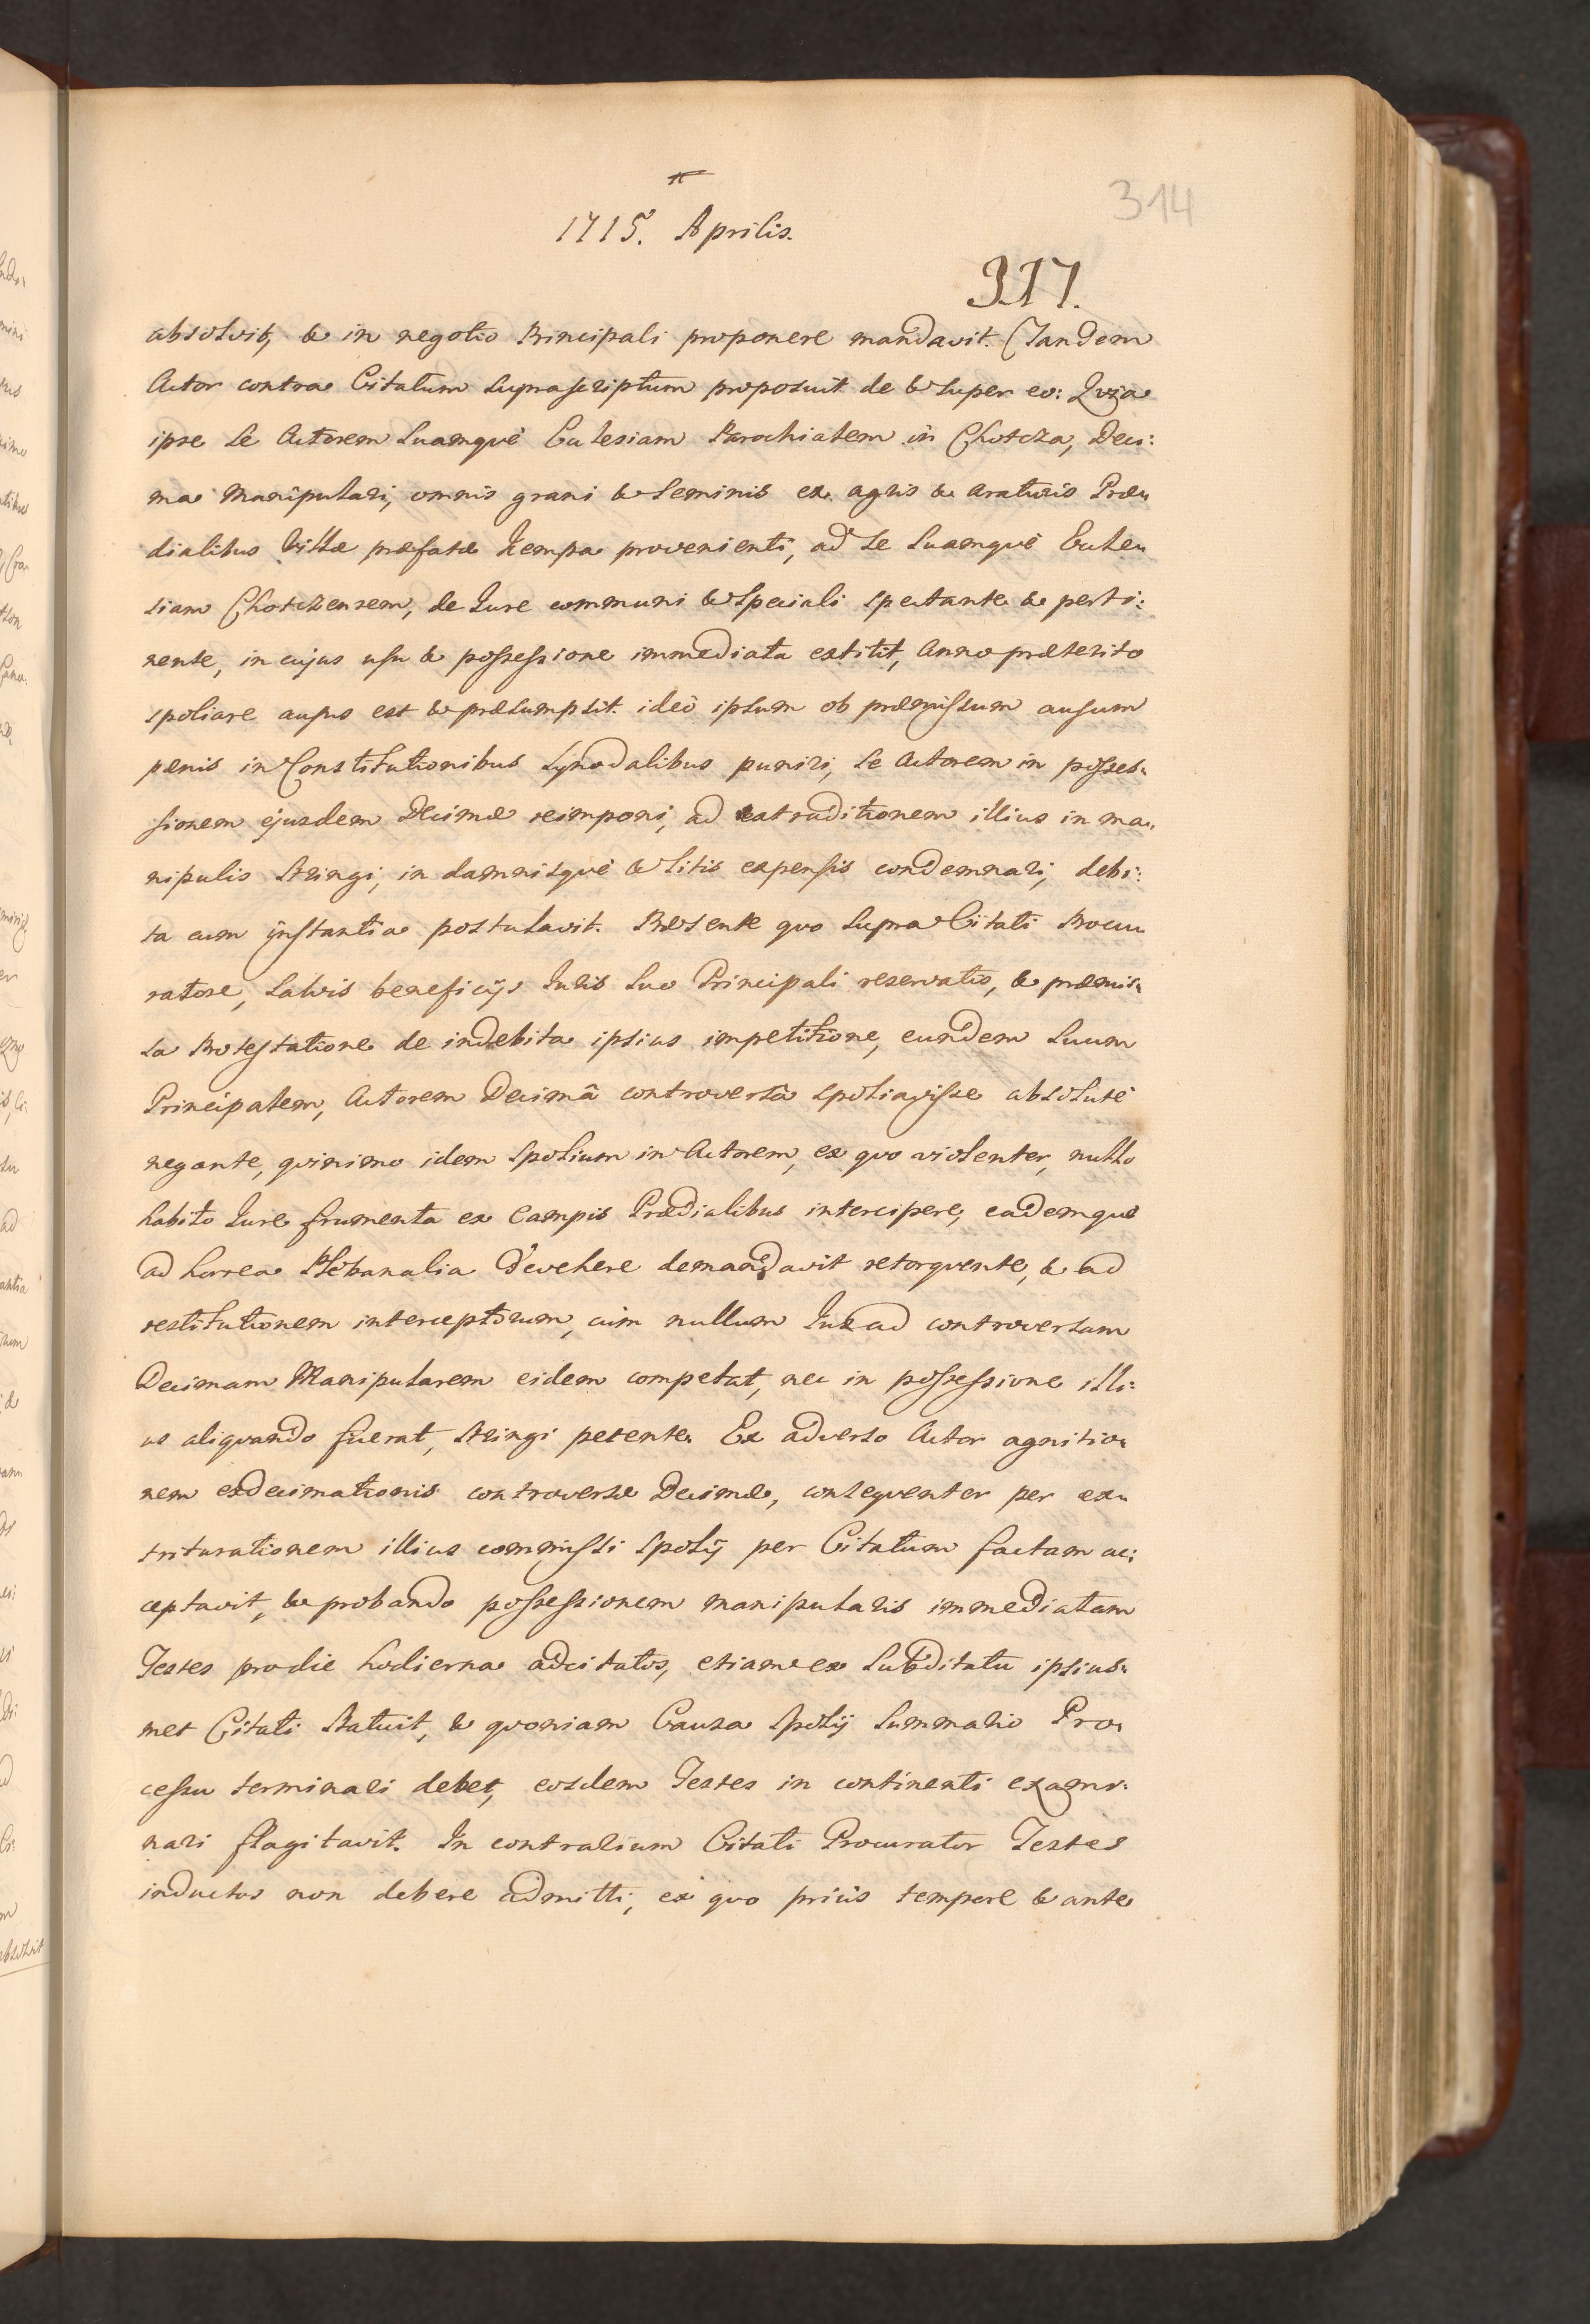 314
1715. Aprilis.
317.
absolvit, & in negotio Principali proponere mandavit. Tandem
Actor contra Citatum Suprascriptum proposuit de & super eo: Qvia
ipse Se Actorem Suamqvè Ecclesiam Parochialem in Chotcza, Deci:
ma Manipulari, omnis grani & Seminis ex agris & araturis Præ„
dialibus Villæ præfatæ Kempa provenienti, ad Se Suamqvè Eccle„
siam Chotczensem, de Jure communi & Speciali spectante & perti:
nente, in cujus usu & possessione immediata extitit, Anno præterito
spoliare ausus est & præsumpsit. ideò ipsum ob præmissum ausum
pænis in Constitutionibus Synodalibus puniri, Se Actorem in posses„
sionem ejusdem Decimæ reimponi, ad extraditionem illius in ma„
nipulis stringi, in damnisqvè & litis expensis condemnari, debi:
ta cum instantia postulavit. Præsente quo Supra Citati Procu„
ratore, Salvis beneficijs Juris Suo Principali reservatis, & præmis„
sa Protestatione de indebita ipsius impetitione, eundem Suum
Principalem, Actorem Decimâ controversâ spoliavisse absolutè
negante, qvinimo idem Spolium in Actorem, ex quo violenter, nullo
habito Jure frumenta ex Campis Prædialibus intercipere, eademqvè
ad horrea Plebanalia devehere demandavit retorqvente, & ad
restitutionem interceptorum, cùm nullum Jus ad controversam
Decimam Manipularem eidem competat, nec in possessione illi:
us aliqvando fuerat, stringi petente. Ex adverso Actor agnitio„
nem exdecimationis controversæ Decimæ, conseqventer per ex„
triturationem illius commissi Spolij per Citatum factam ac:
ceptavit, & probando possessionem manipularis immediatam
Testes pro die hodierna adcitatos, etiam ex Subditatu ipsius„
met Citati Statuit, & qvoniam Causa Spolij Summario Pro„
cessu terminari debet, eosdem Testes in continenti exami„
nari flagitavit. In contrarium Citati Procurator Testes
inductos non debere admitti, ex qvo priùs tempore & ante